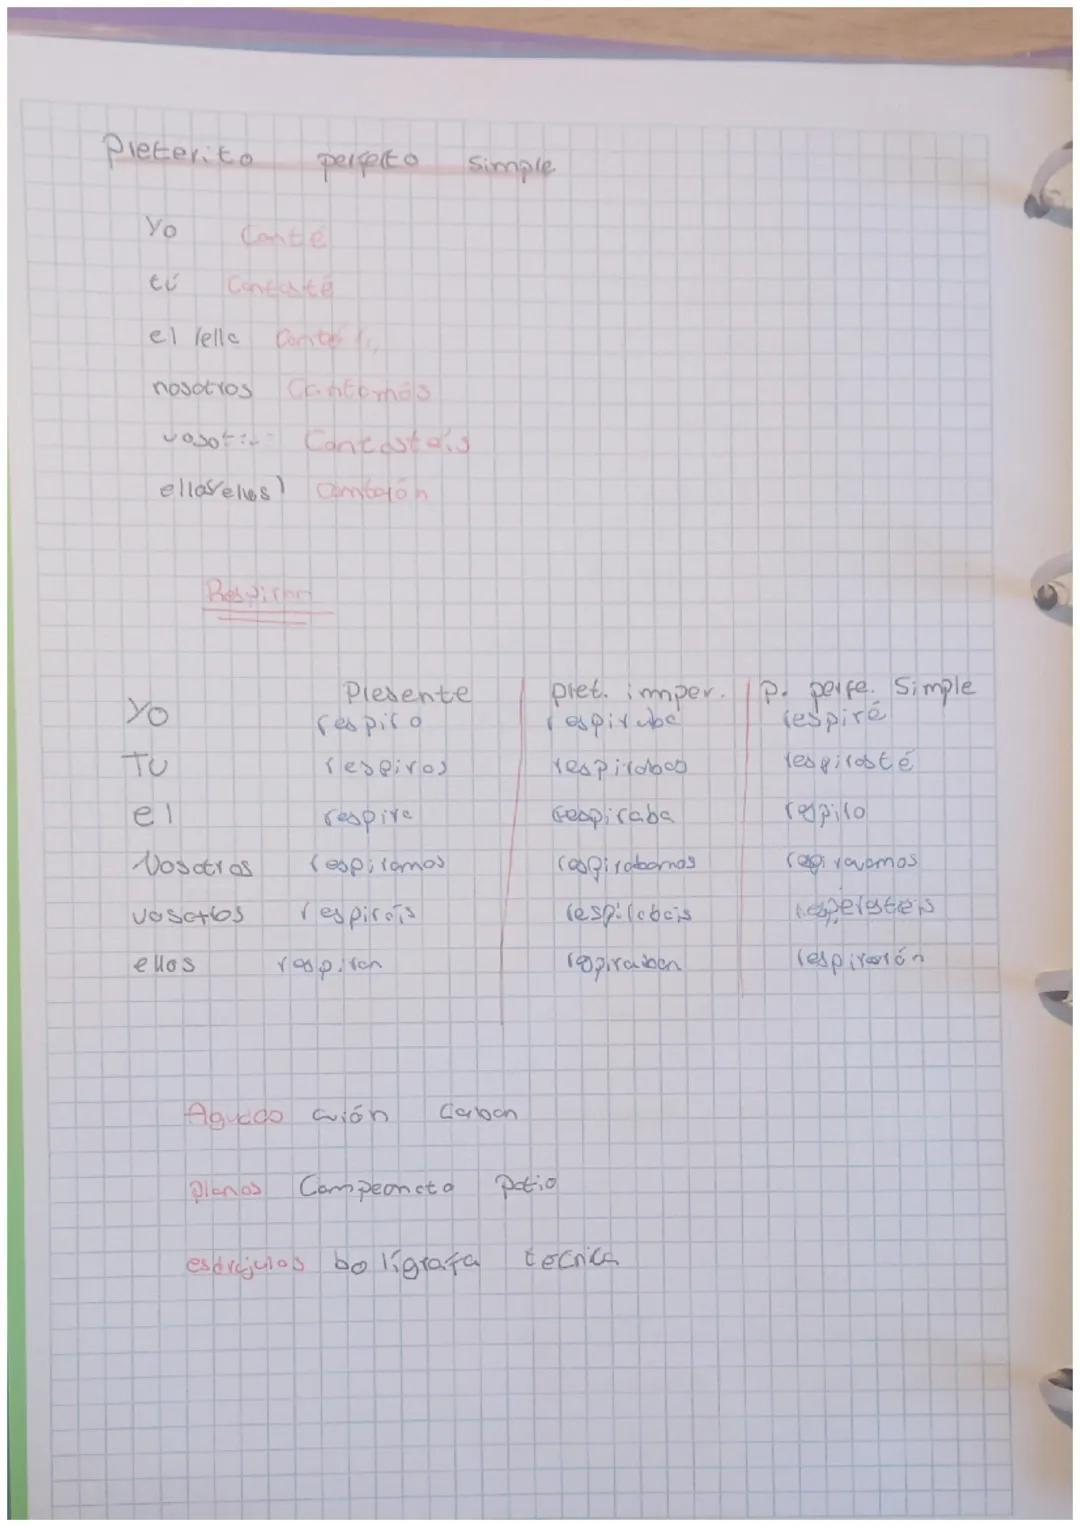 Preterito perfecto simple
Yo Canté
tú Contasté
el /ella
nosotros Cantomós
Contasteis
ellos
Respirar
Presente pret. imper. p. perfe. Simple
Yo respiro respiraba respiré
Tu respiras respirabas respirasté
el respira respiraba respiro
Nosotros respiramos respirabamos
vosotros respirais respirabais
ellos respiran respiraban respirarón
Agudas avión Carbon
planas Campeonato patio
esdrújulas bolígrafa tecnica